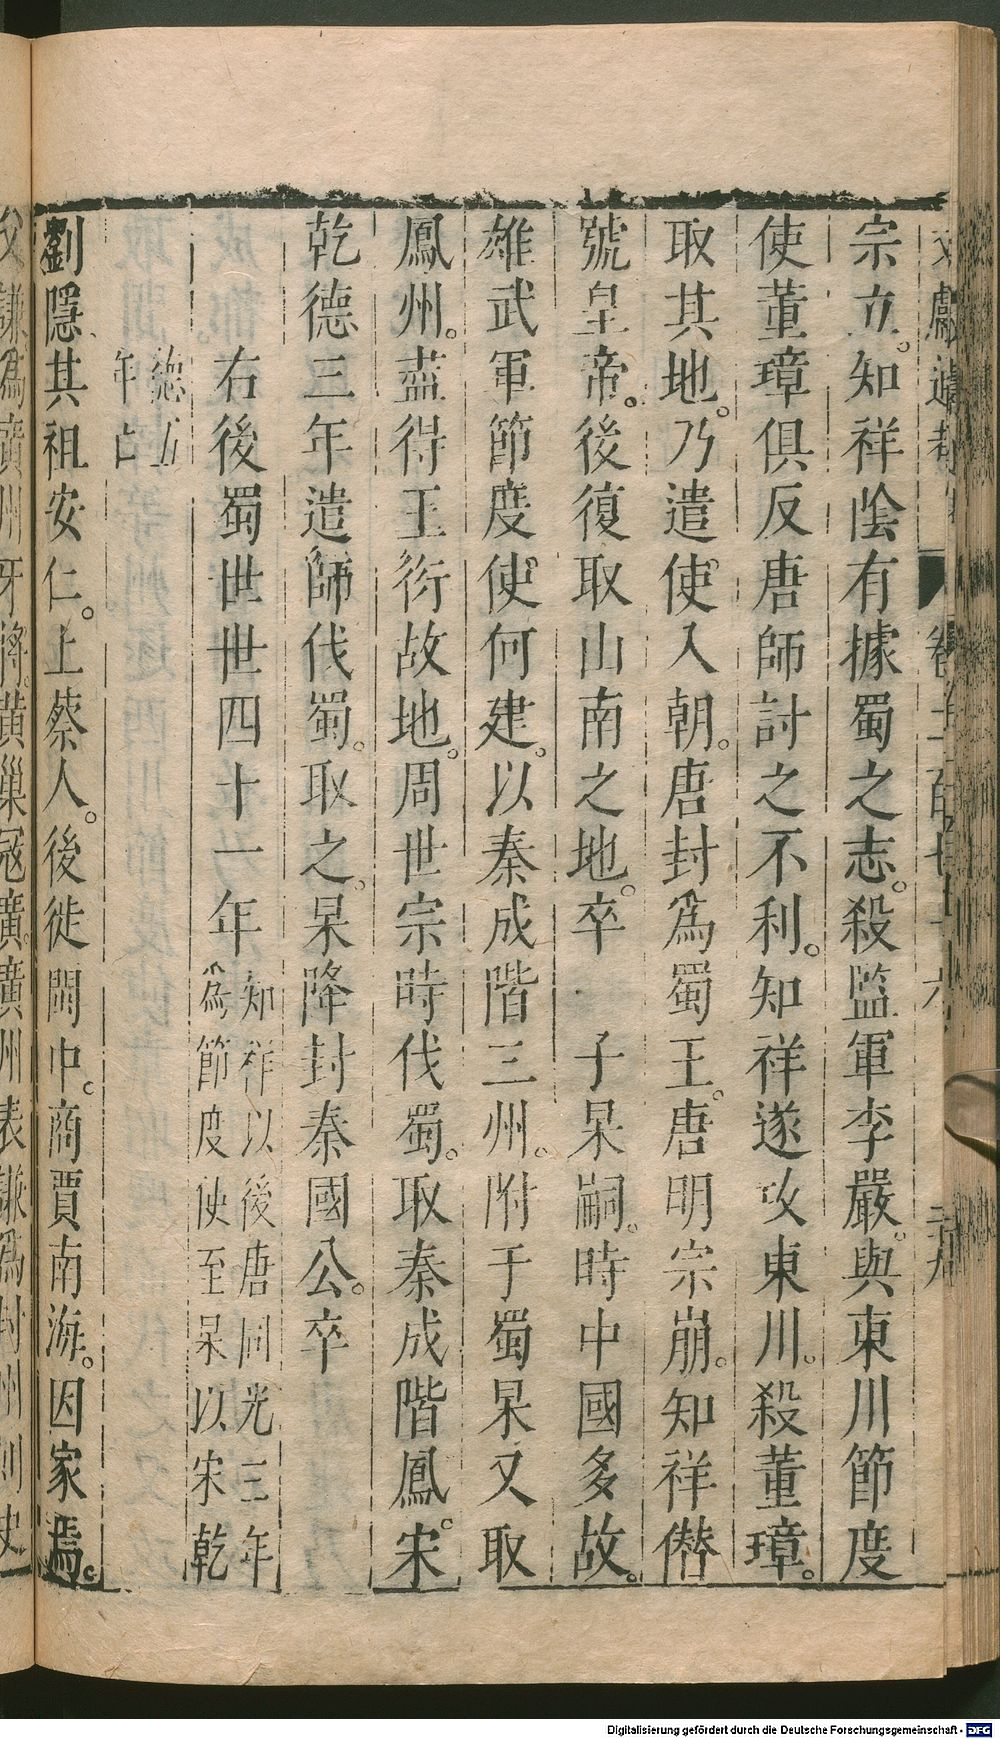 宗立。知祥陰有據蜀之志。殺監軍李嚴。與東川節度
使董璋俱反唐師討之不利。知祥遂攻東川。殺董璋。
取其地。乃遣使入朝。唐封爲蜀王。唐明宗崩。知祥僣
號皇帝。後復取山南之地。卒 子杲嗣。時中國多故。
雄武軍節度使何建。以秦成階三州。附于蜀杲又取
鳳州。葢得王衍故地。周世宗時伐蜀。取秦成階鳳。宋
乾德三年遣師伐蜀。取之。杲降封秦國公。卒
右後蜀世世四十一年
知祥以後唐同光三年
為節度使至杲以宋乾
德五
年亡
劉隱其祖安仁。上蔡人。後徙閩中。商賈南海。因家焉。
父謙爲廣州牙將。黃巢寇廣。廣州表謙爲封州刺史
Digitalisierung gefördert durch die Deutsche Forschungsgemeinschaft - DFG